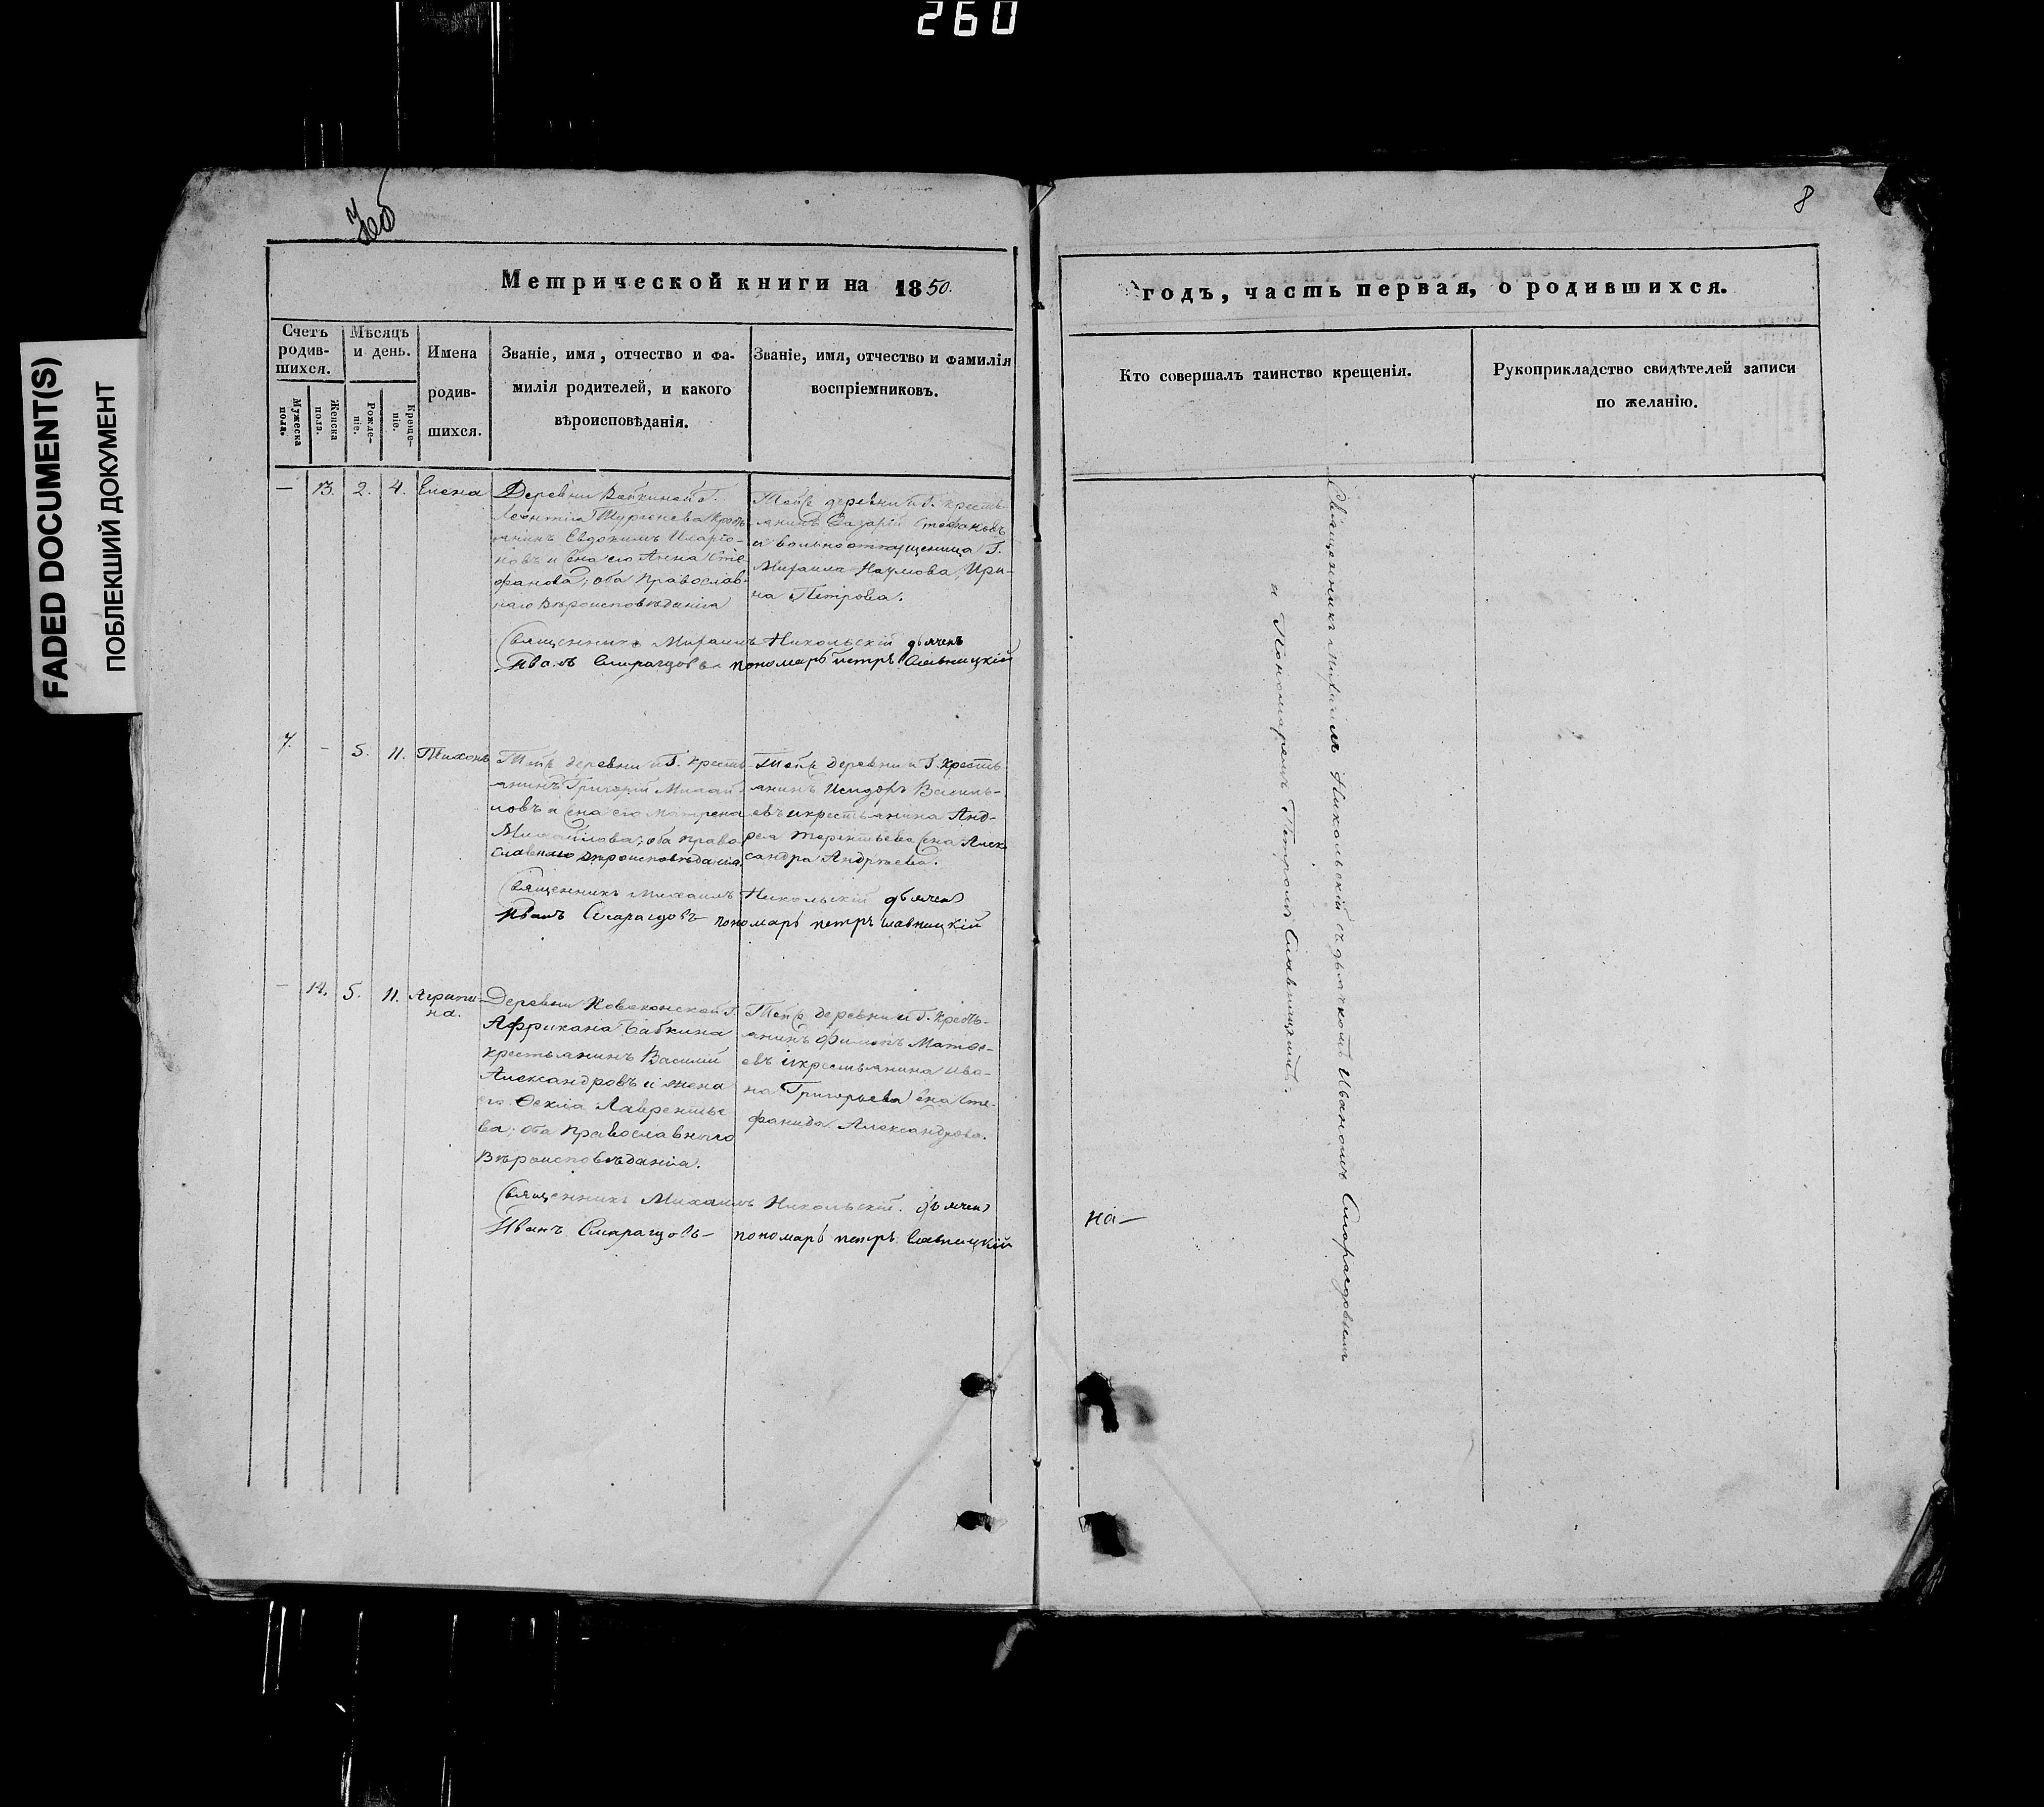 260
FADED DOCUMENT(S)
ПОБЛЕКШИЙ ДОКУМЕНТ
8
Метрической книги на 1850.
годъ, часть первая, о родившихся.
Счетъ
родив-
шихся.
Мужеска
пола.
Женска
пола.
Мѣсяцъ
и день.
Рожде-
ніе.
Креще-
ніе.
Имена
родив-
шихся.
Званіе, имя, отчество и фа-
милія родителей, и какого
вѣроисповѣданія.
Званіе, имя, отчество и фамилія
воспріемниковъ.
Кто совершалъ таинство крещенія.
Рукоприкладство свидѣтелей записи
по желанію.
— 13. 2. 4. Елена
Деревни Г.
Леонтія Тургенева кресть-
янинъ Евдокимъ Иларіо-
новъ и жена его Анна Сте-
фанова; оба православ-
наго вѣроисповѣданія
Тойже деревни и Г. кресть-
янинъ Лазарій Стефановъ
и вольноотпущеница Г.
Михаила Наумова, Ири-
на Петрова.
Священникъ Михаилъ Никольскій дьячекъ
Иванъ Смарагдовъ пономарь петръ Славницкій
7. - 5. 11. Тихонъ
Тойже деревни и Г. кресть-
янинъ Григорій Михай-
ловъ и жена его Матрена
Михайлова; оба право-
славнаго вѣроисповѣданія
Тойже деревни и Г. кресть-
янинъ Исидоръ Василь-
евъ и крестьянина Анд-
рея Терентьева жена Алек-
сандра Андреева.
Священникъ Михаилъ Никольскій дьячек
Иванъ Смарагдовъ пономарь петръ Славницкій
- 14. 5. 11. Агрипи-
на.
Деревни Г.
Африкана Бабкина
крестьянинъ Василій
Александровъ и жена
его Ѳекла Лавренть
ва; оба православнаго
Вѣроисповѣданія.
Тойже деревни и Г. кресть-
янинъ Филипъ Матве-
евъ и крестьянина Ива-
на Григорьева жена Сте-
фанида Александрова.
Священникъ Михаилъ Никольскій. дьячек
Иванъ Смарагдовъ - пономарь петръ Славницкій
Священникъ Михаилъ Никольскій съ дьячкомъ Иваномъ Смарагдовымъ
и Пономаремъ Петромъ Славницкимъ.
на-